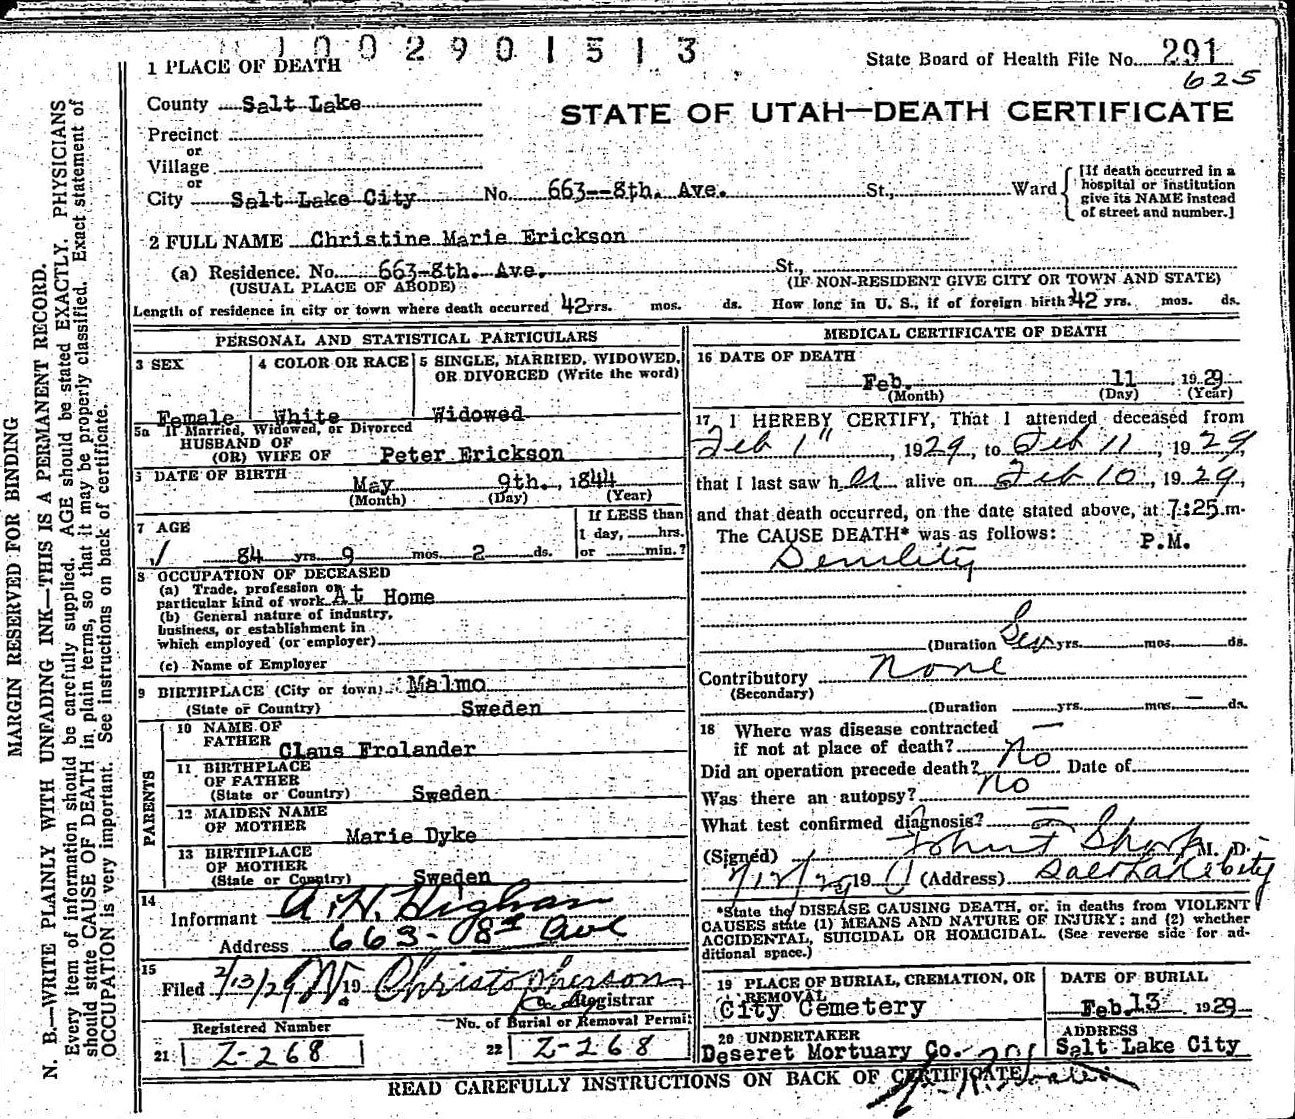 1002901513
State Board of Health File No. 291
625
1 PLACE OF DEATH
STATE OF UTAH—DEATH CERTIFICATE
County Salt Lake
Precinct
or
Village
or
City Salt Lake City No. 663--8th. Ave. St., Ward
[If death occurred in a
hospital or institution
give its NAME instead
of street and number.]
2 FULL NAME Christine Marie Erickson
(a) Residence. No. 663-8th. Ave. St.,
(USUAL PLACE OF ABODE) (IF NON-RESIDENT GIVE CITY OR TOWN AND STATE)
Length of residence in city or town where death occurred 42 yrs. mos. ds. How long in U. S., if of foreign birth? 42 yrs. mos. ds.
PERSONAL AND STATISTICAL PARTICULARS
3 SEX
Female
4 COLOR OR RACE
White
5 SINGLE, MARRIED, WIDOWED,
OR DIVORCED (Write the word)
Widowed
5a If Married, Widowed, or Divorced
HUSBAND OF
(OR) WIFE OF Peter Erickson
DATE OF BIRTH
May 9th., 1844
(Month) (Day) (Year)
7 AGE
84 yrs. 9 mos. 2 ds.
If LESS than
1 day, hrs.
or min.?
8 OCCUPATION OF DECEASED
(a) Trade, profession or
particular kind of work At Home
(b) General nature of industry,
business, or establishment in
which employed (or employer)
(c) Name of Employer
9 BIRTHPLACE (City or town) Malmo
(State or Country) Sweden
PARENTS
10 NAME OF
FATHER Claus Frolander
11 BIRTHPLACE
OF FATHER
(State or Country) Sweden
12 MAIDEN NAME
OF MOTHER Marie Dyke
13 BIRTHPLACE
OF MOTHER
(State or Country) Sweden
14
Informant A. H. Higham
Address 663- 8th Ave
15
Filed 2/13/29 19 Christopherson
Registrar
Registered Number
21 Z-268
No. of Burial or Removal Permit
22 Z-268
MEDICAL CERTIFICATE OF DEATH
16 DATE OF DEATH
Feb. 11 1929
(Month) (Day) (Year)
17 I HEREBY CERTIFY, That I attended deceased from
Feb 1", 1929, to Feb 11, 1929,
that I last saw her alive on Feb 10, 1929,
and that death occurred, on the date stated above, at 7:25 m.
The CAUSE DEATH* was as follows: P.M.
Senility
(Duration Sev yrs. mos. ds.
Contributory None
(Secondary)
(Duration yrs. mos. — ds.
18 Where was disease contracted
if not at place of death? —
Did an operation precede death? No Date of
Was there an autopsy? No
What test confirmed diagnosis? —
(Signed) John T Sharp M. D.
2/12/29 19 (Address) Salt Lake City
*State the DISEASE CAUSING DEATH, or, in deaths from VIOLENT
CAUSES state (1) MEANS AND NATURE OF INJURY; and (2) whether
ACCIDENTAL, SUICIDAL OR HOMICIDAL. (See reverse side for ad-
ditional space.)
19 PLACE OF BURIAL, CREMATION, OR
REMOVAL
City Cemetery
DATE OF BURIAL
Feb. 13 1929
20 UNDERTAKER
Deseret Mortuary Co.
ADDRESS
Salt Lake City
READ CAREFULLY INSTRUCTIONS ON BACK OF CERTIFICATE
MARGIN RESERVED FOR BINDING
N. B.—WRITE PLAINLY WITH UNFADING INK—THIS IS A PERMANENT RECORD.
Every item of information should be carefully supplied. AGE should be stated EXACTLY. PHYSICIANS
should state CAUSE OF DEATH in plain terms, so that it may be properly classified. Exact statement of
OCCUPATION is very important. See instructions on back of certificate.